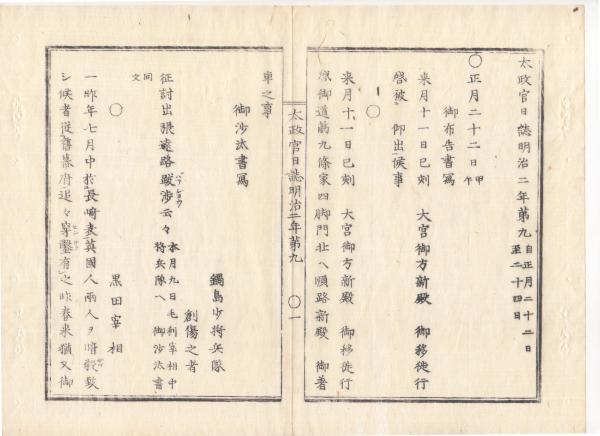 太政官日誌明治二年第九 自正月二十二日 至二十四日
○正月二十二日 甲午
御布告書寫
來月十一日巳刻 大宮御方新殿 御移徙行
啓被 仰出候事
○
來月十一日巳刻 大宮御方新殿 御移徙行
啓御道筋九條家四脚門北ヘ順路新殿 御著
太政官日誌明治二年第九 ○一
車之事
御沙汰書寫
鍋島少將兵隊
創傷之者
征討出張遠路跋涉云々 本月九日毛利宰相中將兵隊ヘ 御沙汰書
同文
○
黒田宰相
一昨年七月中於長崎表英國人兩人ヲ暗殺致
シ候者從舊幕府追々穿鑿有之昨春來猶又御